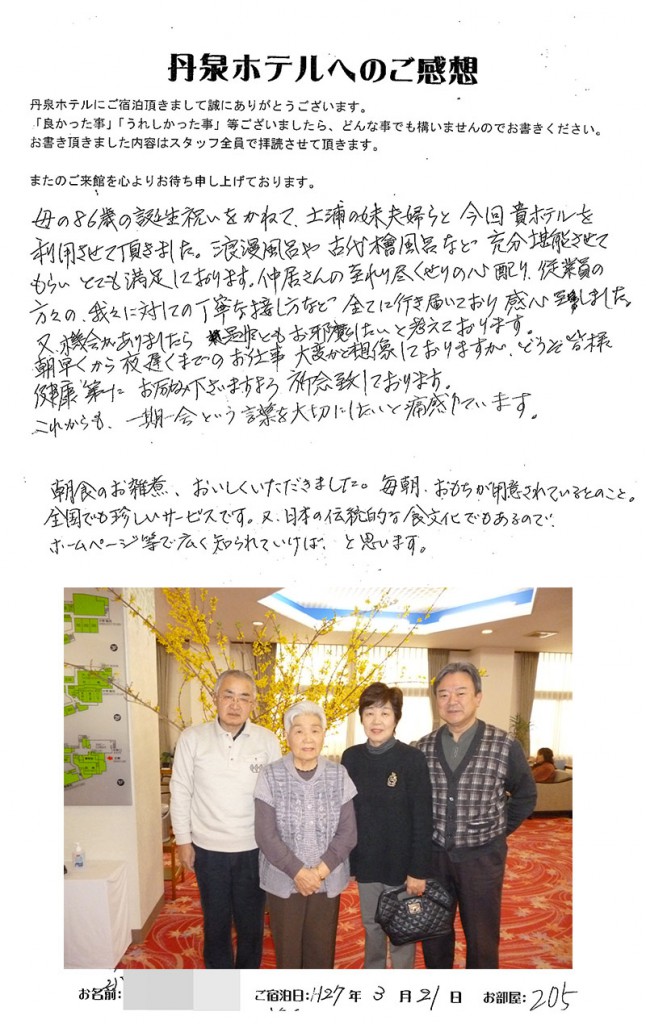 丹泉ホテルへのご感想
丹泉ホテルにご宿泊頂きまして誠にありがとうございます。
「良かった事」「うれしかった事」等ございましたら、どんな事でも構いませんのでお書きください。
お書き頂きました内容はスタッフ全員で拝読させて頂きます。
またのご来館を心よりお待ち申し上げております。
母の86歳の誕生祝いをかねて、土浦の妹夫婦らと今回貴ホテルを
利用させて頂きました。浪漫風呂や古代檜風呂など充分堪能させて
もらいとても満足しております。仲居さんの至れり尽くせりの心配り、従業員の
方々の、我々に対しての丁寧な接し方など全てに行き届いており感心致しました。
又、機会がありましたら是非ともお邪魔したいと考えております。
朝早くから夜遅くまでのお仕事大変かと想像しておりますが、どうぞ皆様
健康第一にお励み下さいますよう祈念致しております。
これからも、一期一会という言葉を大切にしたいと痛感しています。
朝食のお雑煮、おいしくいただきました。毎朝、おもちが用意されているとのこと。
全国でも珍しいサービスです。又、日本の伝統的な食文化でもあるので、
ホームページ等で広く知られていけば、と思います。
お名前: ご宿泊日:H27年 3月21日 お部屋:205